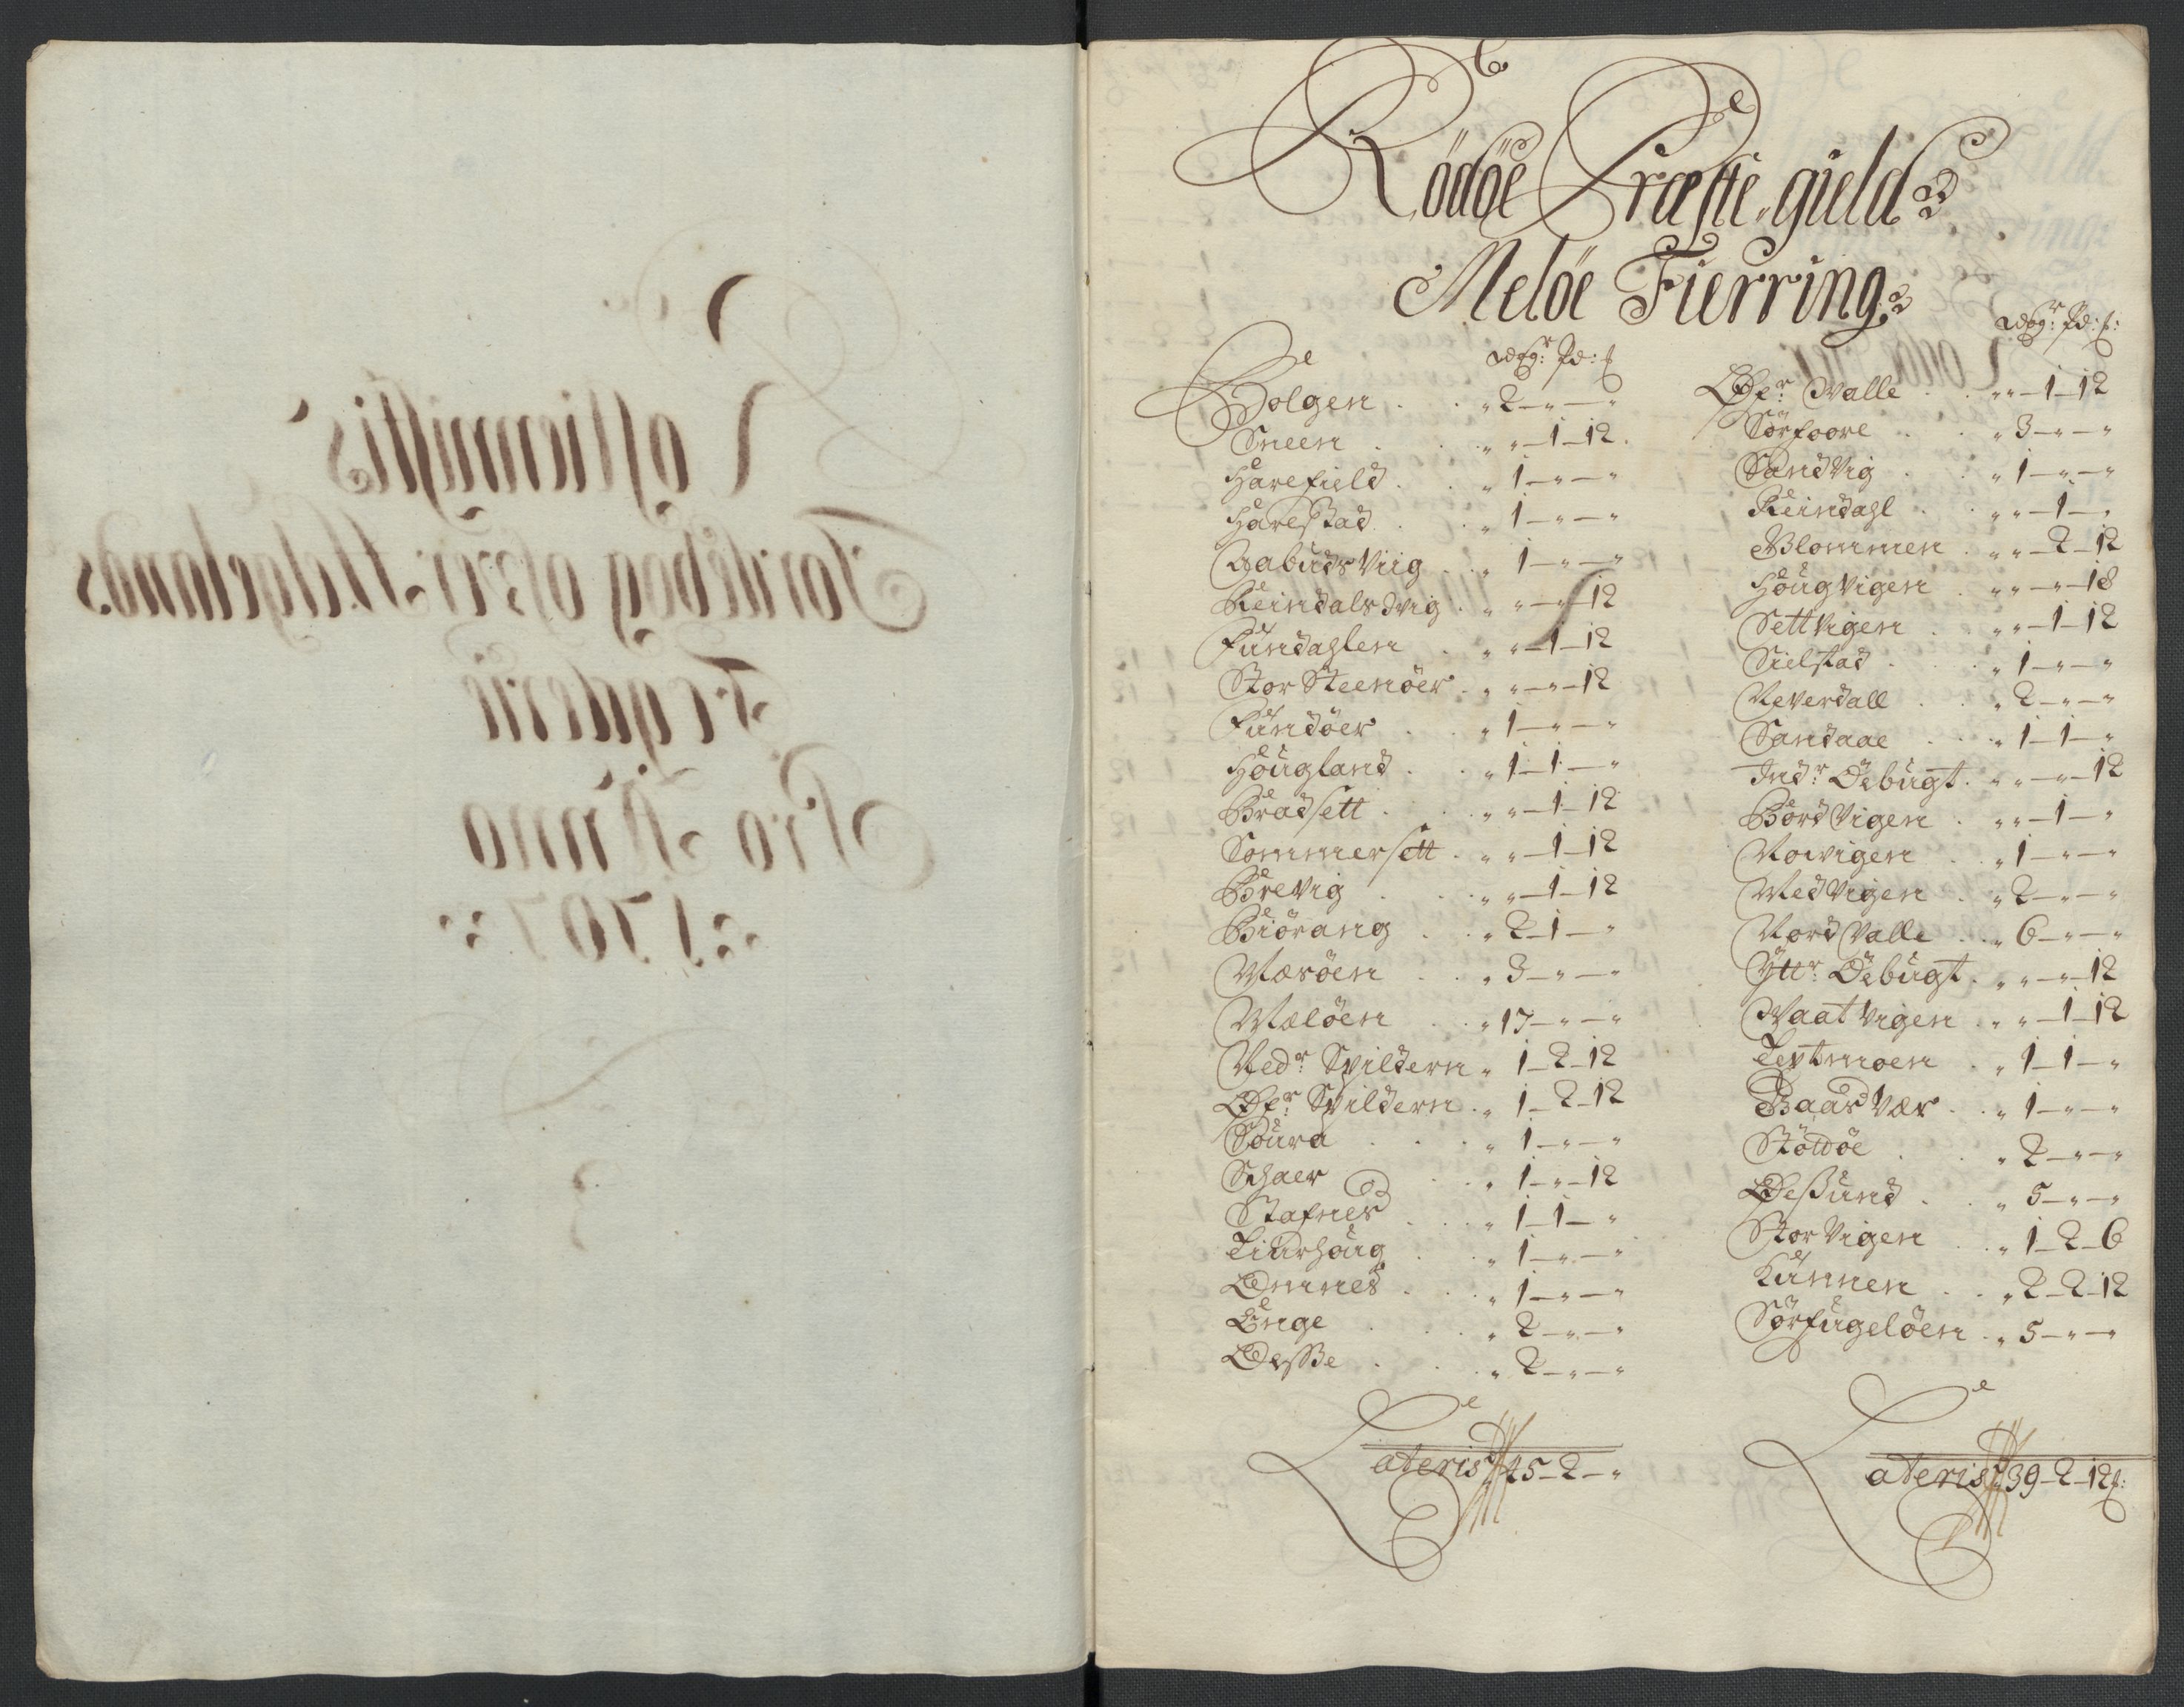 Rödöe Præste-gield
Meloe Fierring
Wog: Pd: ₰
Bolgen . . " 2 — " — "
Sneen . . " " — 1 — 12
Harefield . . " 1 — " — "
Harestad . . " 1 — " — "
Aabuds Viig . . " 1 — " — "
Reindals Wiig . " " — " — 12
Fundahlen . " " — 1 — 12
Stor Steenöer . " " — " — 12
Fundöer . . " 1 — " — "
Hougland . . " 1 — 1 — "
Bradsett . . " " — 1 — 12
Sommersett . " " — 1 — 12
Brevig . . " " — 1 — 12
Biörang . . " 2 — 1 — "
Mæsöen . . " 3 — " — "
Mæelöen . . " 17 — " — "
Nedr: Spildern " 1 — 2 — 12
Øfr: Spildern . " 1 — 2 — 12
Soura . . " 1 — " — "
Schaer . . " 1 — " — 12
Stafnes . . " 1 — 1 — "
Tiurhoug . . " 1 — " — "
Ømnes . . " 1 — " — "
Enge . . " 2 — " — "
. . " 2 — " — "
Lateris 45 — 2 — "
Wog: Pd: ₰:
Øfr: Walle . . " " — 1 — 12
Sörfoore . . " 3 — " — "
Sandvig . . " 1 — " — "
Reindahl . . " " — 1 — "
Blommen . " " — 2 — 12
Hougvigen . " " — " — 18
Settvigen . " " — 1 — 12
Sielstad . . " 1 — " — "
Neverdall . . " 2 — " — "
Sandaae . . " 1 — 1 — "
Indr: Öebugt . " " — " — 12
Bordvigen . " " — 1 — "
Novigen . . " 1 — " — "
Medvigen . " 2 — " — "
Nord Valle . . " 6 — " — "
Yttr: Öebugt . " " — " — 12
Waatvigen . " " — 1 — 12
. . " 1 — 1 — "
Baadvær . . " 1 — " — "
Stöttöe . . " 2 — " — "
Øessund . . " 5 — " — "
Storvigen . . " 1 — 2 — 6
Kunnen . . " 2 — 2 — 12
Sörfugelöen . " 5 — " — "
Lateris 39 — 2 — 12 ₰: